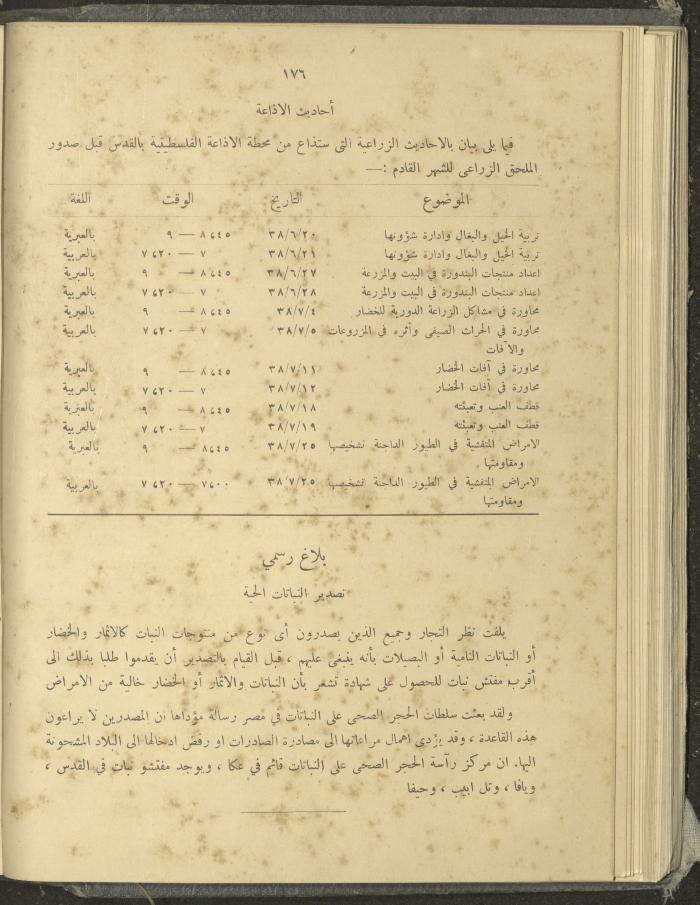 ١٧٦
أحاديث الاذاعة
فيما يلى بيان بالاحاديث الزراعية التى ستذاع من محطة الاذاعة الفلسطينية بالقدس قبل صدور
الملحق الزراعى للشهر القادم :—
الموضوع التاريخ الوقت اللغة
تربية الخيل والبغال وادارة شؤونها ٣٨/٦/٢٠ ٨،٤٥ — ٩ بالعبرية
تربية الخيل والبغال وادارة شؤونها ٣٨/٦/٢١ ٧ — ٧،٢٠ بالعربية
اعداد منتجات البندورة في البيت والمزرعة ٣٨/٦/٢٧ ٨،٤٥ — ٩ بالعبرية
اعداد منتجات البندورة في البيت والمزرعة ٣٨/٦/٢٨ ٧ — ٧،٢٠ بالعربية
محاورة في مشاكل الزراعة الدورية للخضار ٣٨/٧/٤ ٨،٤٥ — ٩ بالعبرية
محاورة في الحراث الصيفى وأثره في المزروعات ٣٨/٧/٥ ٧ — ٧،٢٠ بالعربية
والآفات
محاورة في آفات الخضار ٣٨/٧/١١ ٨،٤٥ — ٩ بالعبرية
محاورة في آفات الخضار ٣٨/٧/١٢ ٧ — ٧،٢٠ بالعربية
قطف العنب وتعبئته ٣٨/٧/١٨ ٨،٤٥ — ٩ بالعبرية
قطف العنب وتعبئته ٣٨/٧/١٩ ٧ — ٧،٢٠ بالعربية
الامراض المتفشية في الطيور الداجنة تشخيصها ٣٨/٧/٢٥ ٨،٤٥ — ٩ بالعبرية
ومقاومتها
الامراض المتفشية في الطيور الداجنة تشخيصها ٣٨/٧/٢٥ ٧،٠٠ — ٧،٢٠ بالعربية
ومقاومتها
بلاغ رسمي
تصدير النباتات الحية
يلفت نظر التجار وجميع الذين يصدرون أى نوع من منتوجات النبات كالاثمار والخضار
أو النباتات النامية أو البصيلات بأنه ينبغى عليهم ، قبل القيام بالتصدير أن يقدموا طلبا بذلك الى
أقرب مفتش نبات للحصول على شهادة تشعر بأن النباتات والاثمار أو الخضار خالية من الامراض
ولقد بعثت سلطات الحجر الصحى على النباتات في مصر رسالة مؤداها ان المصدرين لا يراعون
هذه القاعدة ، وقد يؤدى اهمال مراعاتها الى مصادرة الصادرات او رفض ادخالها الى البلاد المشحونة
اليها. ان مركز رآسة الحجر الصحى على النباتات قائم في عكا ، ويوجد مفتشو نبات في القدس ،
ويافا ، وتل ابيب ، وحيفا